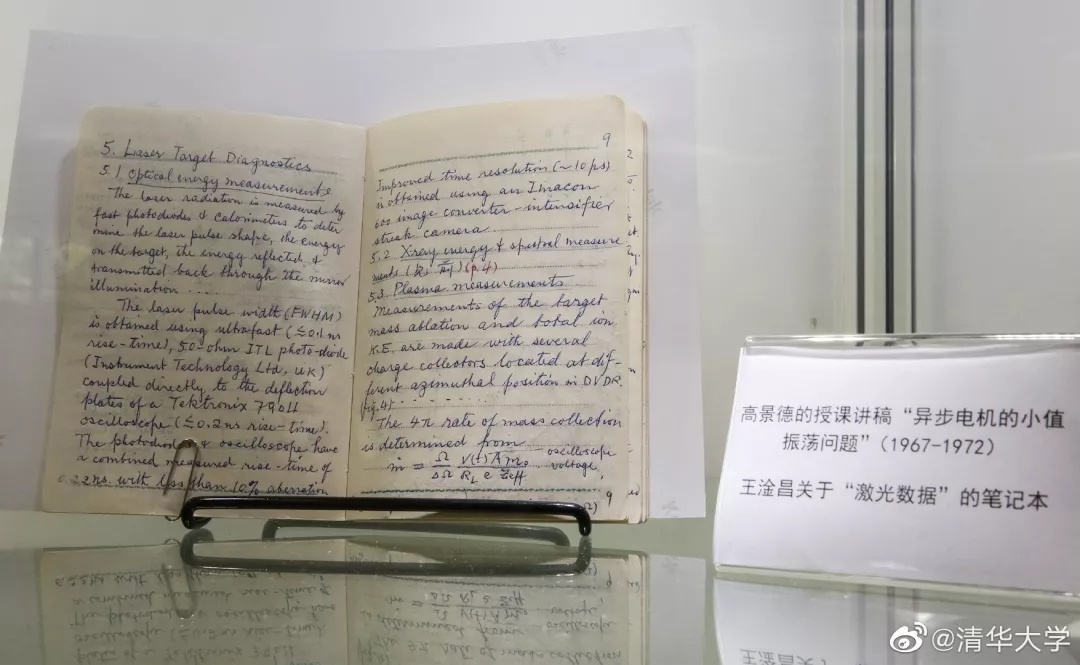 5. Laser Target Diagnostics
5.1 Optical energy measurements
The laser radiation is measured by
fast photodiodes & calorimeters to deter
mine the laser pulse shape, the energy
on the target, the energy reflected &
transmitted back through the mirror
illumination .....
The laser pulse width (FWHM)
is obtained using ultrafast (≦0.1 ns
rise-time), 50-ohm ITL photo-diode
(Instrument Technology Ltd, UK)
coupled directly to the deflection
plates of a Tektronix 7904
oscilloscope (≦0.2 ns rise-time).
The photodiode & oscilloscope have
a combined measured rise-time of
0.22ns with less than 10% aberration
9
Improved time resolution (~10 ps)
is obtained using an Imacon
600 image converter-intensifier
streak camera.
5.2 X-ray energy & spectral measure
ments (p.4)
5.3 Plasma measurements
Measurements of the target
mass ablation and total ion
K.E. are made with several
charge collectors located at dif-
ferent azimuthal position in DVDR
(fig.4)
The 4π rate of mass collection
is determined from
oscilloscope
voltage,
ṁ = Ω/ΔΩ V(t)Am₀/R_L e Z̄eff
9
高景德的授课讲稿“异步电机的小值
振荡问题”（1967-1972）
王淦昌关于“激光数据”的笔记本
@清华大学